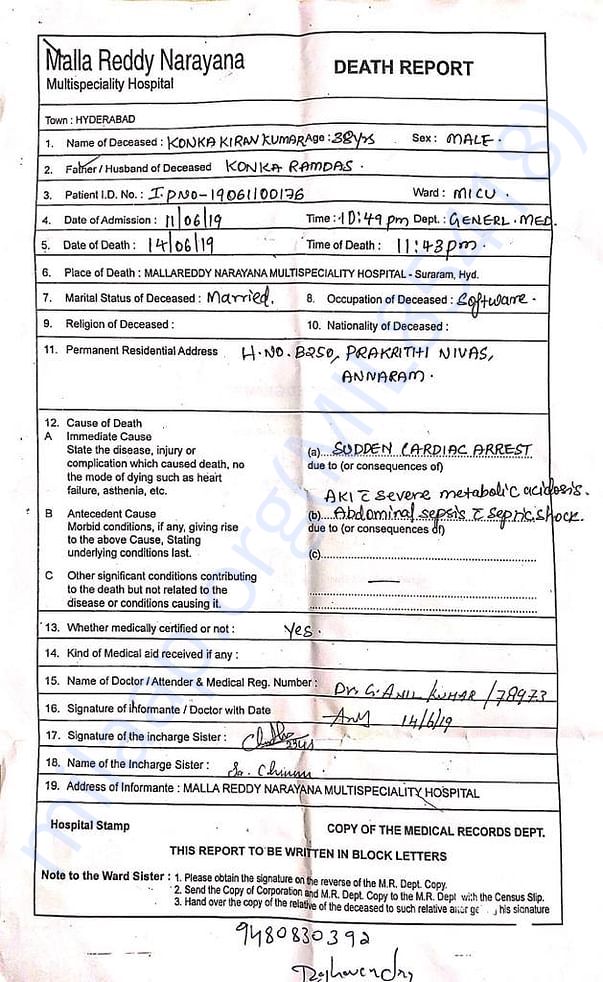 Malla Reddy Narayana
Multispeciality Hospital
DEATH REPORT
Town : HYDERABAD
1. Name of Deceased : KONKA KIRAN KUMAR Age : 38yrs Sex : MALE.
2. Father / Husband of Deceased KONKA RAMDAS.
3. Patient I.D. No. : I.P NO-19061100176 Ward : MICU.
4. Date of Admission : 11/06/19 Time : 10:49 pm Dept. : GENERL. MED.
5. Date of Death : 14/06/19 Time of Death : 11:43pm.
6. Place of Death : MALLAREDDY NARAYANA MULTISPECIALITY HOSPITAL - Suraram, Hyd.
7. Marital Status of Deceased : Married. 8. Occupation of Deceased : Software.
9. Religion of Deceased : 10. Nationality of Deceased :
11. Permanent Residential Address H.NO. B250, PRAKRITHI NIVAS,
ANNARAM.
12. Cause of Death
A Immediate Cause
State the disease, injury or (a) SUDDEN CARDIAC ARREST
complication which caused death, no due to (or consequences of)
the mode of dying such as heart
failure, asthenia, etc. AKI c̄ severe metabolic acidosis.
B Antecedent Cause (b) Abdominal sepsis c̄ septic shock.
Morbid conditions, if any, giving rise due to (or consequences of)
to the above Cause, Stating
underlying conditions last. (c)
C Other significant conditions contributing —
to the death but not related to the
disease or conditions causing it.
13. Whether medically certified or not : Yes.
14. Kind of Medical aid received if any :
15. Name of Doctor / Attender & Medical Reg. Number : Dr. G. ANIL KUMAR / 78973
16. Signature of ihformante / Doctor with Date 14/6/19
17. Signature of the incharge Sister :
18. Name of the Incharge Sister :
19. Address of Informante : MALLA REDDY NARAYANA MULTISPECIALITY HOSPITAL
Hospital Stamp COPY OF THE MEDICAL RECORDS DEPT.
THIS REPORT TO BE WRITTEN IN BLOCK LETTERS
Note to the Ward Sister : 1. Please obtain the signature on the reverse of the M.R. Dept. Copy.
2. Send the Copy of Corporation and M.R. Dept. Copy to the M.R. Dept with the Census Slip.
3. Hand over the copy of the relative of the deceased to such relative his signature
9480830392
Raghavendra